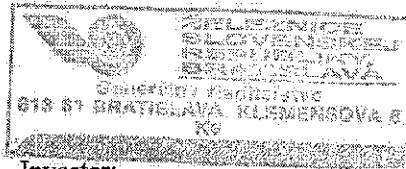 ŽELEZNICE
SLOVENSKEJ
REPUBLIKY
BRATISLAVA
Generálny riaditeľstvo
813 61 BRATISLAVA, KLEMENSOVA 8
Investor: